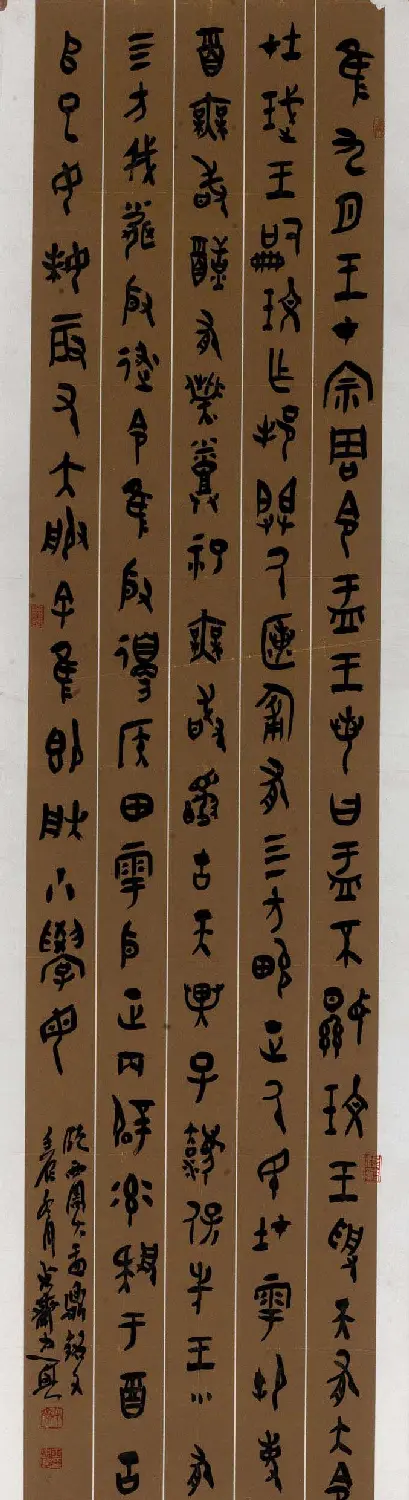 隹九月王才宗周令盂王若曰盂不顯玟王受天有大令
在珷王嗣玟乍邦闢氒匿匍有三方畯正氒民在雩御事
酉無敢醻有祡烝祀無敢古天異子灋保先王有
三方我聞殷述令隹殷邊侯田雩殷正百辟率肄于酉古
𠂤已女妹辰又大服余隹即朕小學女
大盂鼎銘文
月